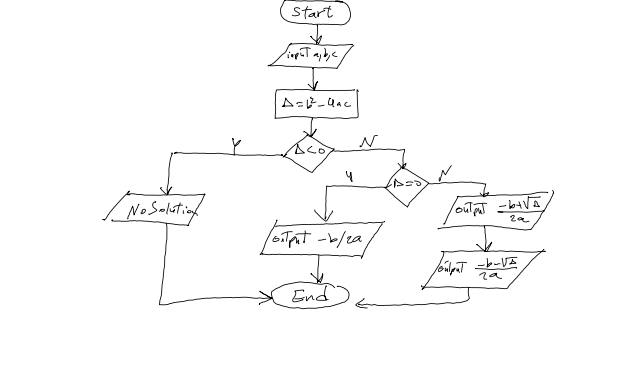 Start
input a,b,c
Δ = b² - 4ac
Δ<0
Y
N
Δ=0
Y
N
No Solution
output -b/2a
output -b+√Δ / 2a
output -b-√Δ / 2a
End